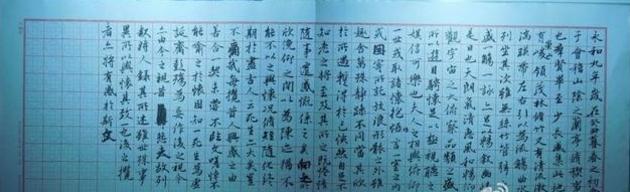 永和九年歲在癸丑暮春之初
于會稽山陰之蘭亭脩稧事
也羣賢畢至少長咸集此地
有峻領茂林脩竹又有清流激
湍暎帶左右引以為流觴曲水
列坐其次雖無絲竹管弦之
盛一觴一詠亦足以暢敘幽情
是日也天朗氣清惠風和暢仰
觀宇宙之大俯察品類之盛
所以遊目騁懷足以極視聽之
娛信可樂也夫人之相與俯仰
一世或取諸懷抱悟言一室之內
或因寄所託放浪形骸之外雖
趣舍萬殊靜躁不同當其欣
於所遇暫得於己快然自足不
知老之將至及其所之既惓情
隨事遷感慨係之矣向之所
欣俛仰之間以為陳迹猶不
能不以之興懷況脩短隨化終
期於盡古人云死生亦大矣豈
不痛哉每攬昔人興感之由
若合一契未嘗不臨文嗟悼不
能喻之於懷固知一死生為虛
誕齊彭殤為妄作後之視今
亦由今之視昔悲夫故列
敘時人錄其所述雖世殊事
異所以興懷其致一也後之攬
者亦將有感於斯文